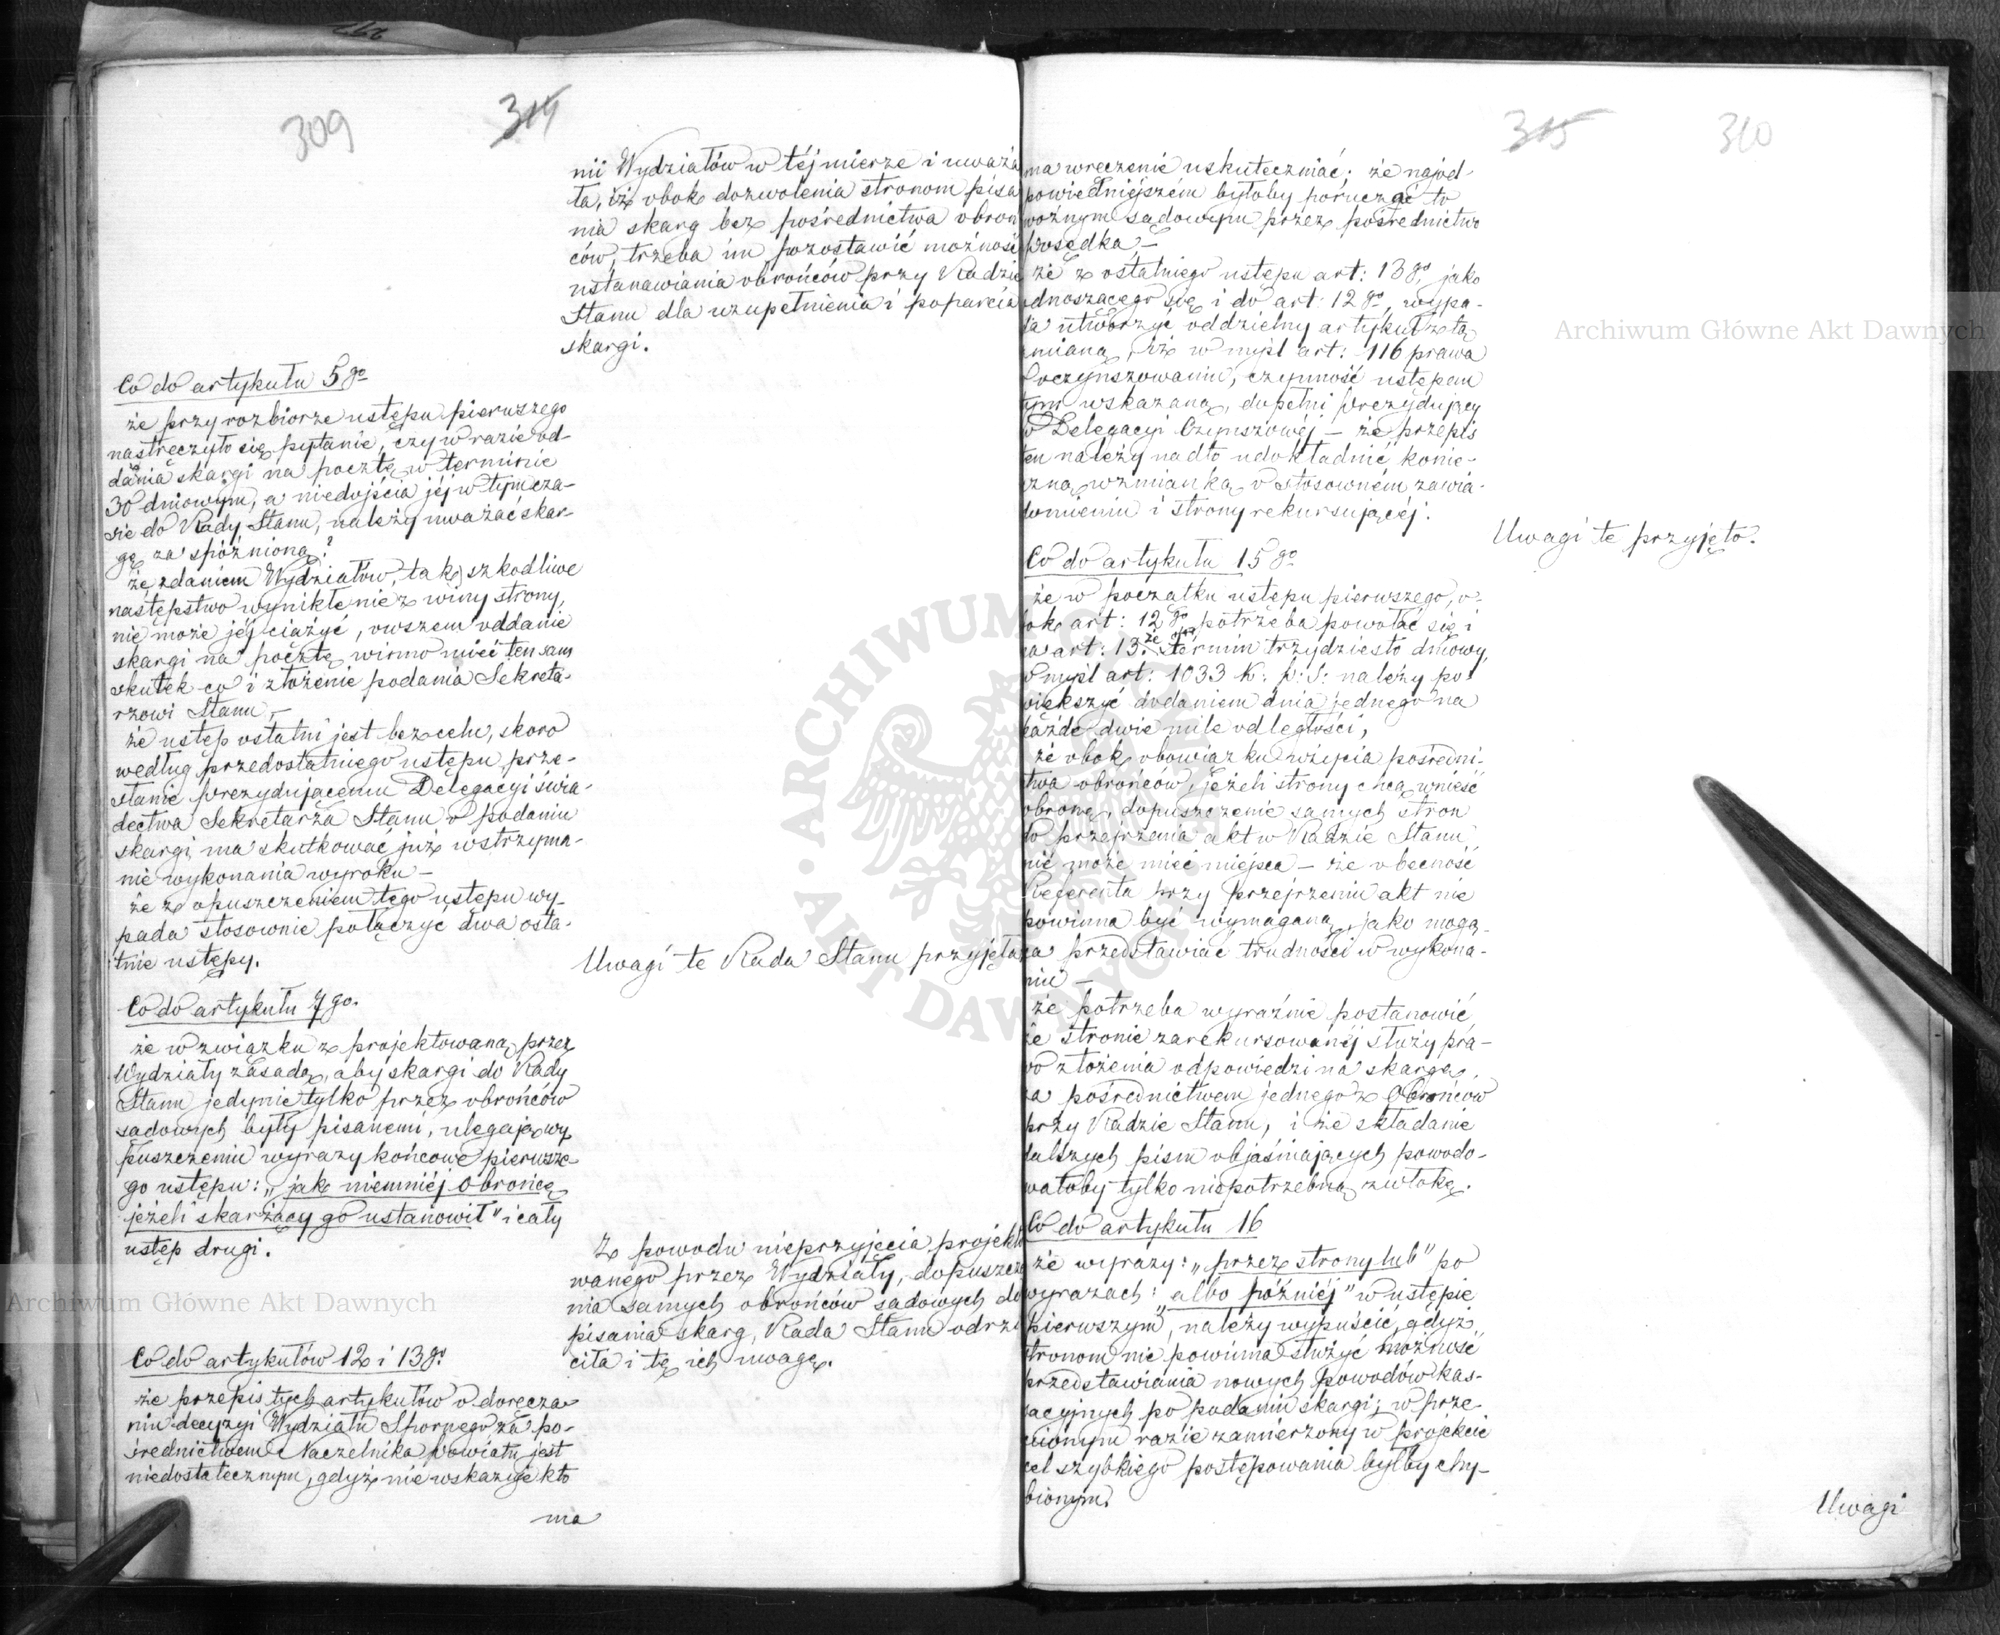 309
314
nii Wydziałów w téj mierze i uważa
ła, iż obok dozwolenia stronom pisa
nia skarg bez pośrednictwa obroń
ców, trzeba im pozostawić możność
ustanawiania obrońców przy Radzie
Stanu dla uzupełnienia i poparcia
skargi.
Co do artykułu 5go
że przy rozbiorze ustępu pierwszego
nastręczyło się pytanie, czy w razie od-
dania skargi na pocztę w terminie
30 dniowym, a niedojścia jéj w tymcza-
sie do Rady Stanu, należy uważać skar-
gę za spóźnioną?
że zdaniem Wydziałów, tak szkodliwe
następstwo wynikłe nie z winy strony,
nie może jéj ciążyć, owszem oddanie
skargi na pocztę winno mieć ten sam
skutek co i złożenie podania Sekreta-
rzowi Stanu,—
że ustęp ostatni jest bez celu, skoro
według przedostatniego ustępu, prze-
słanie prezydującemu Delegacyi świa-
dectwa Sekretarza Stanu o podaniu
skargi, ma skutkować już wstrzyma-
nie wykonania wyroku —
że z opuszczeniem tego ustępu wy-
pada stosownie połączyć dwa osta-
tnie ustępy.
Uwagi te Rada Stanu przyjęła
Co do artykułu 7go.
że w związku z projektowaną przez
Wydziały zasadą, aby skargi do Rady
Stanu jedynie tylko przez obrońców
sądowych były pisanemi, ulegają wy
puszczeniu wyrazy końcowe pierwsze
go ustępu: „jak niemniéj Obrońcę
jeżeli skarżący go ustanowił" i cały
ustęp drugi.
Z powodu nieprzyjęcia projekto
wanego przez Wydziały, dopuszcze
nia samych obrońców sądowych do
pisania skarg, Rada Stanu odrzu
ciła i tę ich uwagę.
Co do artykułów 12 i 13go.
że przepis tych artykułów o doręcza
niu decyzyi Wydziału Spornego za po-
średnictwem Naczelnika powiatu, jest
niedostatecznym, gdyż nie wskazuje kto
ma
315
310
ma wręczenie uskuteczniać; że najod-
powiedniejszém byłoby poruczać to
woźnym sądowym przez pośrednictwo
posędka,—
że z ostatniego ustępu art: 13go, jako
odnoszącego się i do art: 12go, wypa-
da utworzyć oddzielny artykuł z tą
zmianą, iż w myśl art: 116 prawa
o oczynszowaniu, czynność ustępem
tym wskazaną, dopełni prezydujący
w Delegacyi Czynszowéj — że przepis
ten należy nadto udokładnić konie-
czną wzmianką o stosowném zawia-
domieniu i strony rekursującéj.
Uwagi te przyjęto.
Co do artykułu 15go
że w początku ustępu pierwszego, o-
bok art: 12go, potrzeba powołać się i
na art: 13. że termin trzydziesto dniowy,
w myśl art: 1033 K: p: S: należy po
większyć dodaniem dnia jednego na
każde dwie mile odległości,
że obok obowiązku użycia pośredni-
ctwa obrońców, jeżeli strony chcą wnieść
obronę, dopuszczenie samych stron
do przejrzenia akt w Radzie Stanu,
nie może mieć miejsca — że obecność
Referenta przy przejrzeniu akt nie
powinna być wymaganą, jako mogą-
ca przedstawiać trudności w wykona-
niu —
że potrzeba wyraźnie postanowić
że stronie zarekursowanéj służy pra-
wo złożenia odpowiedzi na skargę,
za pośrednictwem jednego z Obrońców
przy Radzie Stanu, i że składanie
dalszych pism objaśniających powodo-
wałoby tylko niepotrzebną zwłokę.
Co do artykułu 16
że wyrazy: „przez strony lub" po
wyrazach: „albo późniéj" w ustępie
pierwszym, należy wypuścić, gdyż
stronom nie powinna służyć możność
przedstawiania nowych powodów kas-
sacyjnych po podaniu skargi; w prze
ciwnym razie zamierzony w projekcie
cel szybkiego postępowania byłby chy-
bionym.
Uwagi
Archiwum Główne Akt Dawnych
Archiwum Główne Akt Dawnych
ARCHIWUM GŁÓWNE AKT DAWNYCH